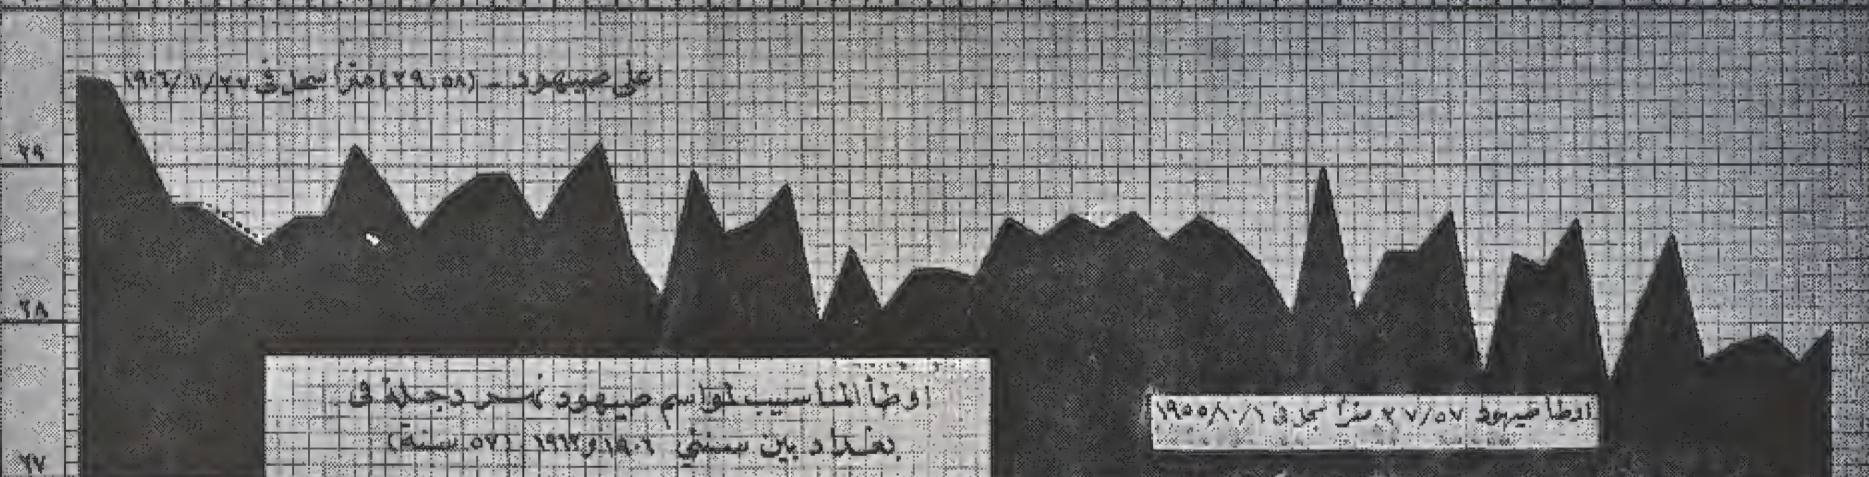 اعلى صيهود - (٢٩,٥٨) متراً سجل في ١٩٠٦/١١/٢٧
٢٩
٢٨
اوطأ المناسيب لمواسم صيهود نهر دجلة في
بغداد بين سنتي ١٩٠٦ و١٩٦٢ (٥٧ سنة)
اوطأ صيهود ٢٧/٥٧ متراً سجل في ١٩٥٥/١٠/١
٢٧